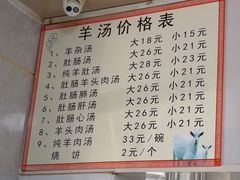 羊汤价格表
1、羊杂汤 大18元 小15元
2、肚肠汤 大26元 小21元
3、纯羊肚汤 大28元 小23元
4、肚肠羊头肉汤 大26元 小21元
5、肚肠肺汤 大26元 小21元
6、肚肠肝汤 大26元 小21元
7、肚肠心汤 大26元 小21元
8、羊头肉汤 大26元 小21元
9、纯羊肉汤 33元/碗
烧饼 2元/个